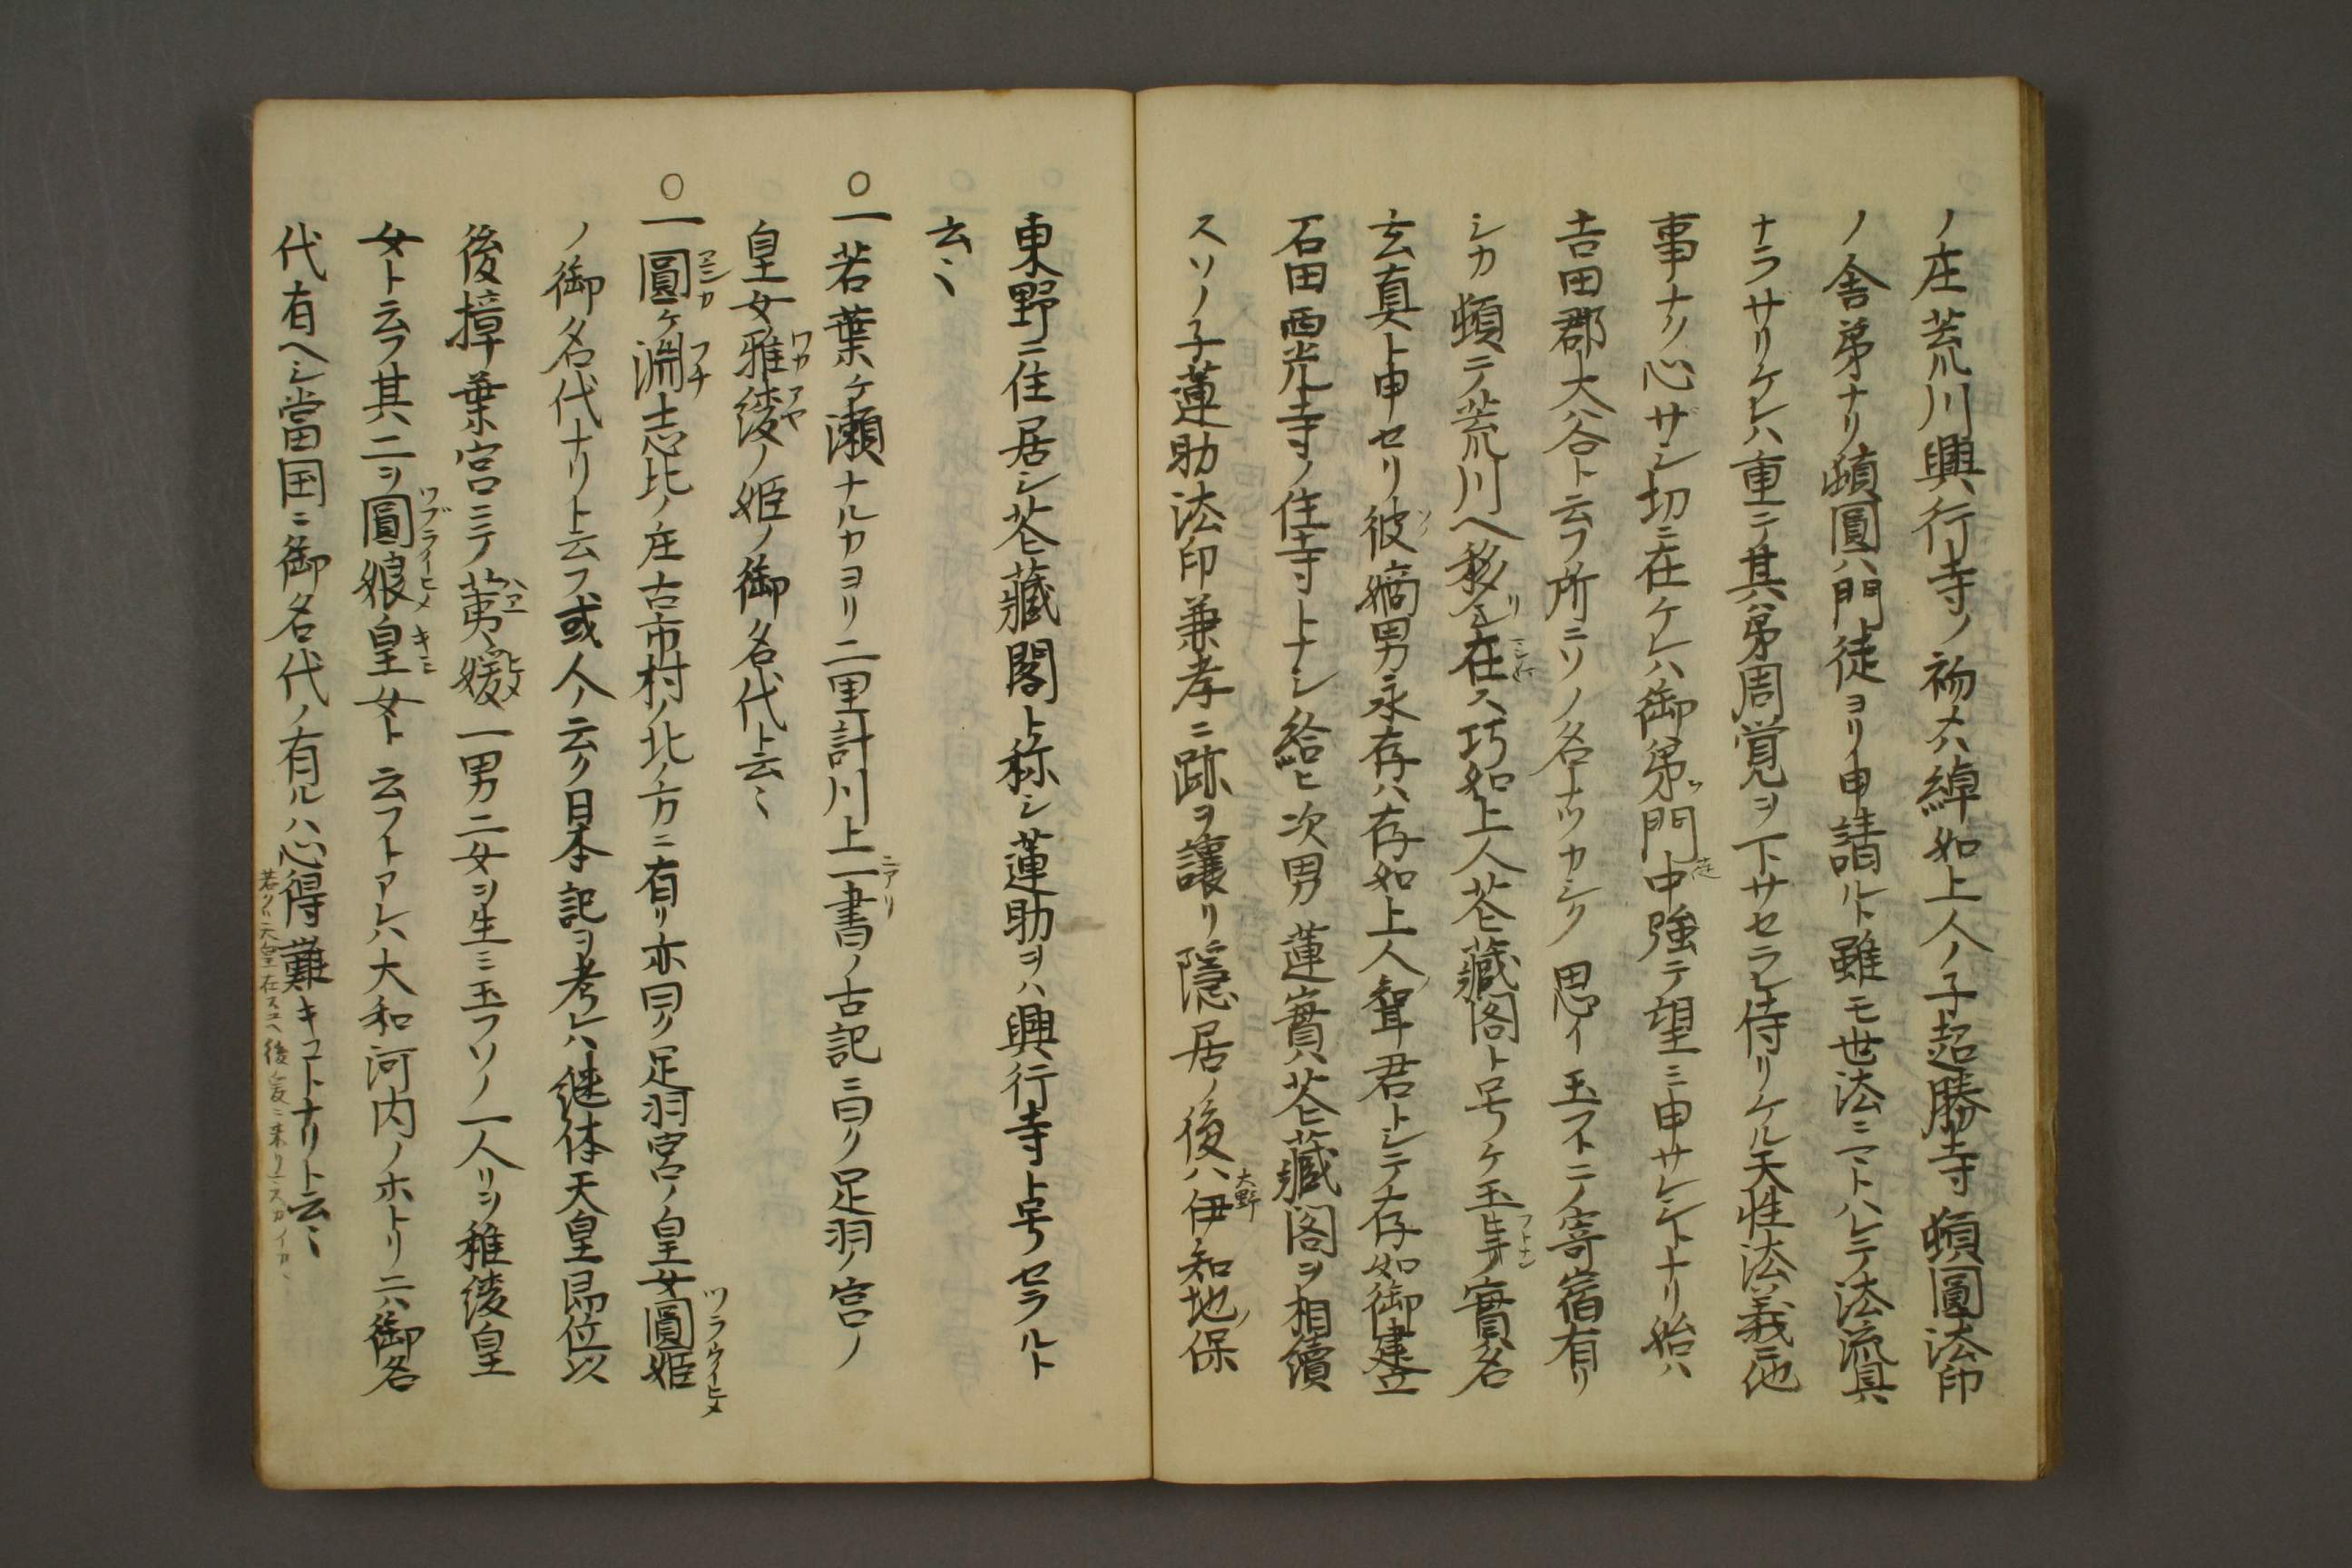 ノ庄荒川興行寺ノ初メハ綽如上人ノ子超勝寺頓圓法印
ノ舎弟ナリ頓圓ハ門徒ヨリノ申請ルト雖モ世法ニマトハレテ法流具
ナラサリケレハ重ニテ其弟周覚ヲ下サセラレ侍リケル天性法義ニ他
事ナク心ザシ切ニ在ケレハ御弟門中強テ望ミ申サレシトナリ始ハ
吉田郡大谷ト云フ所ニソノ名ナツカシク思イ玉フトニノ寄宿有リ
シカ頓テ荒川ヘ移リ在ス巧如上人荅藏閣ト号ケ玉フ実名
玄真ト申セリ彼嫡男永存ハ存如上人聟君トシテ存如御建立
石田西光寺ノ住寺トナシ給ヒ次男蓮實ハ荅藏閣ヲ相續
スソノ子蓮助法印兼孝ニ跡ヲ譲リ隠居ノ後ハ伊知地ノ保
大野
東野ニ住居シ荅藏閣ト称シ蓮助ヲハ興行寺ト号セラルト
云〻
〇一若葉ケ瀬ナルカヨリ二里計川上ニアリ一書ノ古記ニ曰ク足羽ノ宮ノ
皇女雅綾ノ姫ノ御名代ト云〻
〇一圓ケ淵志比ノ庄古市村ノ北ノ方ニ有リ亦曰ク足羽宮ノ皇女圓姫
ノ御名代ナリト云フ或人ノ云ク日本記ヲ考レハ継体天皇即位以
後樟葉宮ニテ荑媛一男二女ヲ生ミ玉フソノ一人リヲ稚綾皇
女ト云フ其二ヲ圓娘皇女ト云フトアレハ大和河内ノホトリニハ御名
代有ヘシ當国ニ御名代ノ有ルハ心得難キコトナリト云〻